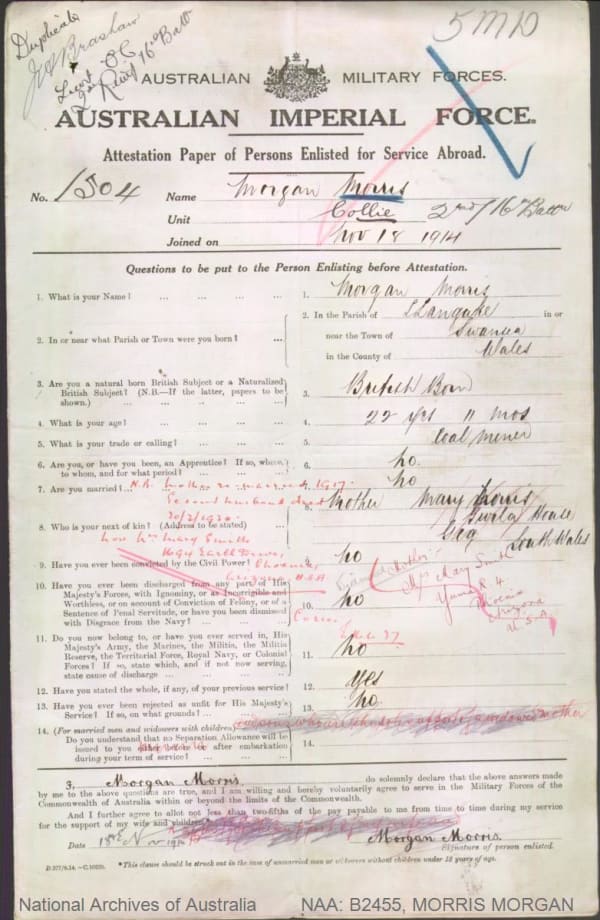 Duplicate
Lieut O.C.
2nd Relief 16th Batt
5 MD
AUSTRALIAN MILITARY FORCES.
AUSTRALIAN IMPERIAL FORCE.
Attestation Paper of Persons Enlisted for Service Abroad.
No. 1504 Name Morgan Morris
Unit Collie 2nd/16 Battn
Joined on Nov 18 1914
Questions to be put to the Person Enlisting before Attestation.
1. What is your Name? ... ... ... ... 1. Morgan Morris
2. In or near what Parish or Town were you born? ... 2. In the Parish of in or
near the Town of Swansea
in the County of Wales
3. Are you a natural born British Subject or a Naturalized British Subject? (N.B.—If the latter, papers to be shown.) ... ... ... ... 3. British Born
4. What is your age? ... ... ... ... 4. 22 yrs 11 mos
5. What is your trade or calling? ... ... ... 5. Coal Miner
6. Are you, or have you been, an Apprentice? If so, where, to whom, and for what period? ... ... 6. no.
7. Are you married? 7. no
N.B. Mother re married 1917.
Second husband died
20/2/1930.
8. Who is your next of kin? (Address to be stated) 8. Mother Mary Morris
House
South Wales
now Mrs Mary Smith
Phoenix
Arizona USA
9. Have you ever been convicted by the Civil Power? 9. no
Mrs Mary Smith
Yuma R 4
Phoenix
Arizona
U.S.A
10. Have you ever been discharged from any part of His Majesty's Forces, with Ignominy, or as Incorrigible and Worthless, or on account of Conviction of Felony, or of a Sentence of Penal Servitude, or have you been dismissed with Disgrace from the Navy? ... ... 10. no
11. Do you now belong to, or have you ever served in, His Majesty's Army, the Marines, the Militia, the Militia Reserve, the Territorial Force, Royal Navy, or Colonial Forces? If so, state which, and if not now serving, state cause of discharge ... ... 11. no
12. Have you stated the whole, if any, of your previous service? 12. Yes
13. Have you ever been rejected as unfit for His Majesty's Service? If so, on what grounds? ... ... 13. no.
14. (For married men and widowers with children)
Do you understand that no Separation Allowance will be issued to you after embarkation during your term of service? ... ... 14.
I, Morgan Morris do solemnly declare that the above answers made
by me to the above questions are true, and I am willing and hereby voluntarily agree to serve in the Military Forces of the
Commonwealth of Australia within or beyond the limits of the Commonwealth.
And I further agree to allot not less than two-fifths of the pay payable to me from time to time during my service
for the support of my wife and children.
Date 18th Nov 1914 Morgan Morris.
Signature of person enlisted.
*This clause should be struck out in the case of unmarried men or widowers without children under 18 years of age.
National Archives of Australia NAA: B2455, MORRIS MORGAN